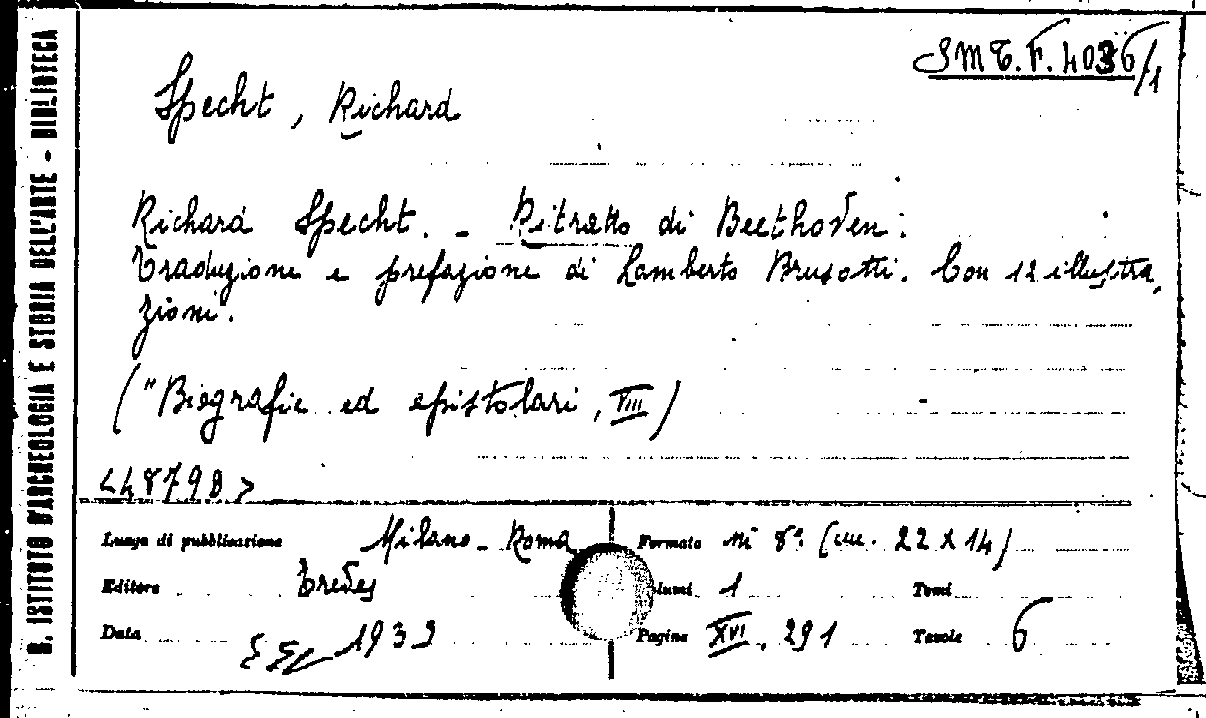 R. ISTITUTO D'ARCHEOLOGIA E STORIA DELL'ARTE - BIBLIOTECA
SMT.F.4036/1
Specht, Richard
Richard Specht. - Ritratto di Beethoven.
Traduzione e prefazione di Lamberto Brusotti. Con 12 illustra
zioni.
("Biografie ed epistolari, VIII)
<48798>
Luogo di pubblicazione Milano - Roma
Formato in 8º (cm. 22 x 14)
Editore Treves
lumi 1
Tomi
Data 1933
Pagine XVI, 291
Tavole 6